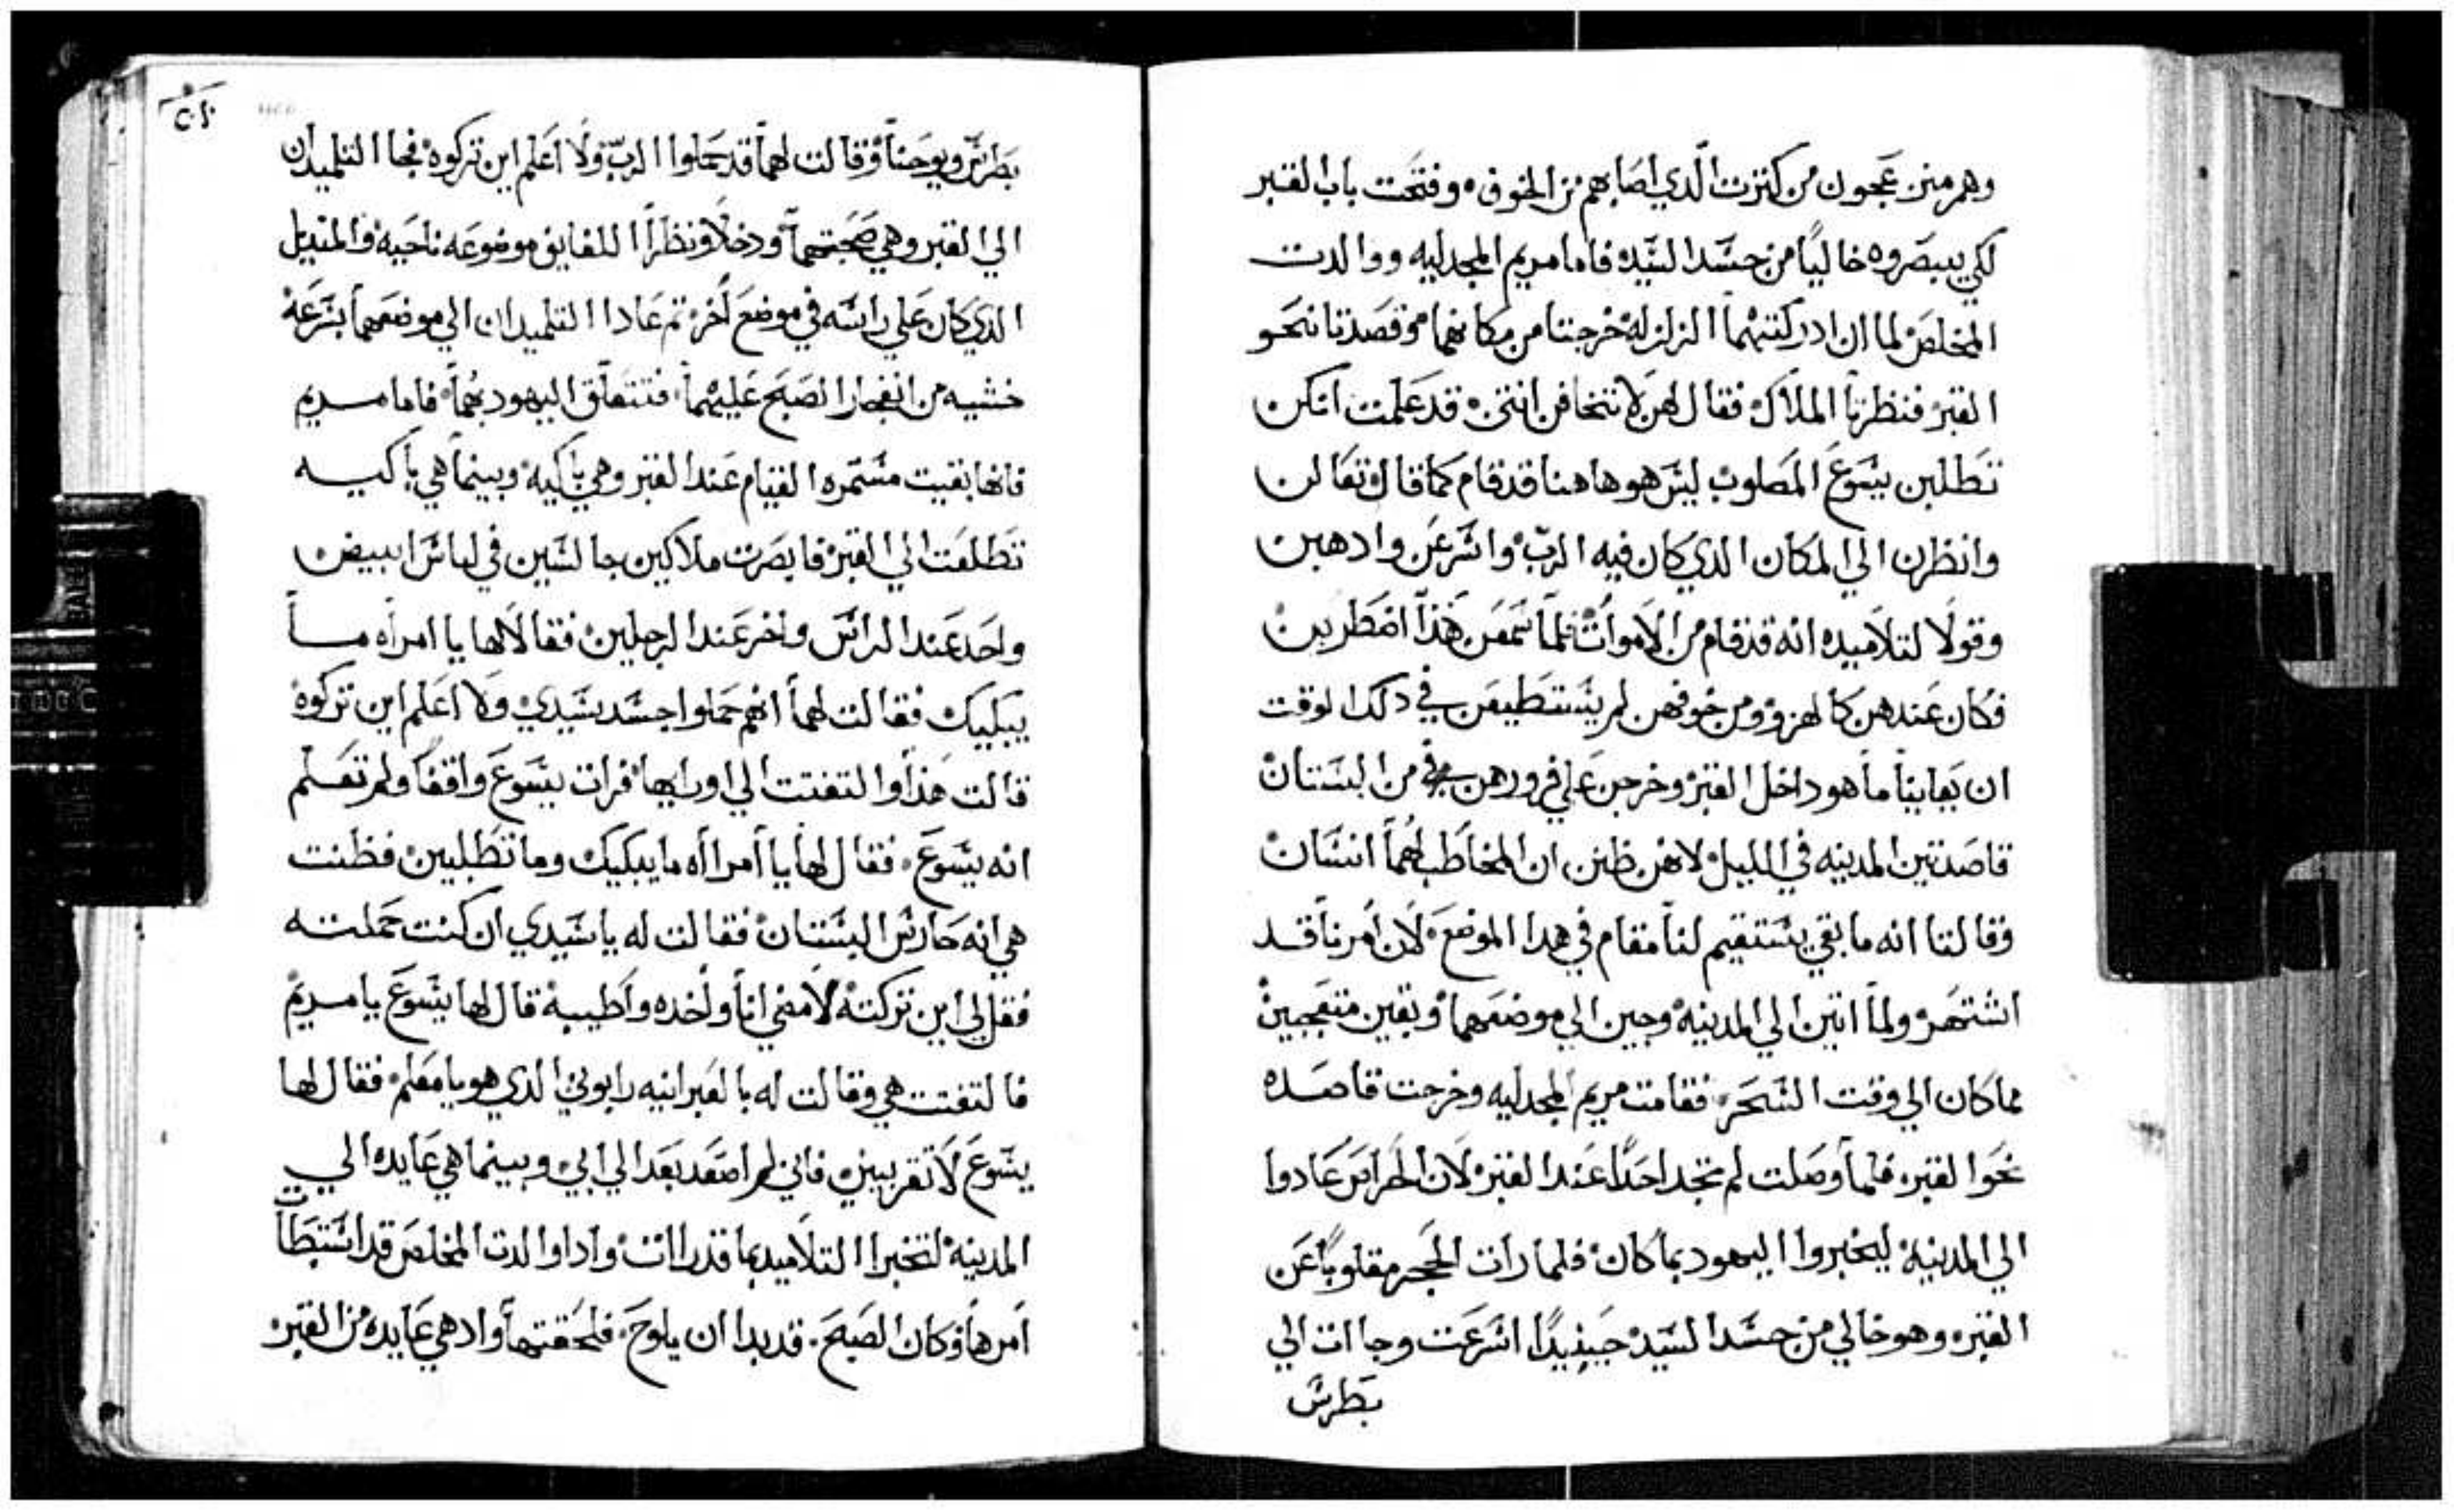 وهم منزعجون من كثرت الدي اصابهم من الخوف وفتحت باب القبر
لكي يبصروه خاليًا من جسد السيد فاما مريم المجدليه ووالدت
المخلص لما ان ادركتهما الزلزله خرجتا من مكانهما وقصدتا نحو
القبر فنظرتا الملاك فقال لهن لا تتخافن انتن قد علمت انكن
تطلبن يسوع المصلوب ليس هو هاهنا قد قام كما قال تعالن
وانظرن الي المكان الدي كان فيه الرب واسرعن وادهبن
وقولا لتلاميده انه قد قام من الاموات فلما سمعن هذا اضطربن
فكان عندهن كالهزو ومن خوفهن لم يستطيعن في دلك الوقت
ان يعاينا ما هو داخل القبر وخرجن علي فورهن من البستان
قاصدتين المدينه في الليل لانهن ظنن ان المخاطب لهما انسان
وقالتا انه ما بقي يستقيم لنا مقام في هدا الموضع لان امرنا قد
اشتهر ولما اتين الي المدينه وجين الي موضعهما وبقين متعجبين
مما كان الي وقت السحر فقامت مريم المجدليه وخرجت قاصده
نحوا لقبر فلما وصلت لم تجد احدًا عند القبر لان الحراس عادوا
الي المدينه ليخبروا اليهود بما كان فلما رات الحجر مقلوبًا عن
القبر وهو خالي من جسد السيد حينيدًا اسرعت وجاات الي
بطرس
بطرس ويوحنا وقالت لهما قد حملوا الرب ولا اعلم اين تركوه فجاا التلميدان
الي القبر وهي صحبتهما ودخلا ونظراا اللفايف موضوعه ناحيه والمنديل
الدي كان علي راسه في موضع اخر تم عادا التلميدان الي موضعهما بسرعه
خشيه من انفجار الصبح عليهما فتتعلق اليهود بهما فاما مريم
فانها بقيت مستمره القيام عند القبر وهي باكيه وبينما هي باكيه
تطلعت الي القبر فابصرت ملاكين جالسين في لباس ابييض
واحد عند الراس واخر عند الرجلين فقالا لها يا امراه ما
يبكييك فقالت لهما انهم حملوا جسد سيدي ولا اعلم اين تركوه
قالت هذا والتفتت الي اورايها فرات يسوع واقفا ولم تعلم
انه يسوع فقال لها يا أمراه ما يبكيك وما تطلبين فظنت
هي انه حارس البستان فقالت له يا سيدي ان كنت حملته
فقل لي اين تركته لامضي انا واخده واطيبه قال لها يسوع يا مريم
فالتفتت هي وقالت له بالعبرانيه رابوني الدي هو يا معلم فقال لها
يسوع لا تقربيني فاني لم اصعد بعد الي ابي وبينما هي عايده الي
المدينه لتخبر االتلاميد بما قد راات وادا والدت المخلص قد استبطات
امرها وكان الصبح قد بدا ان يلوح فلحقتها واد هي عايده من القبر